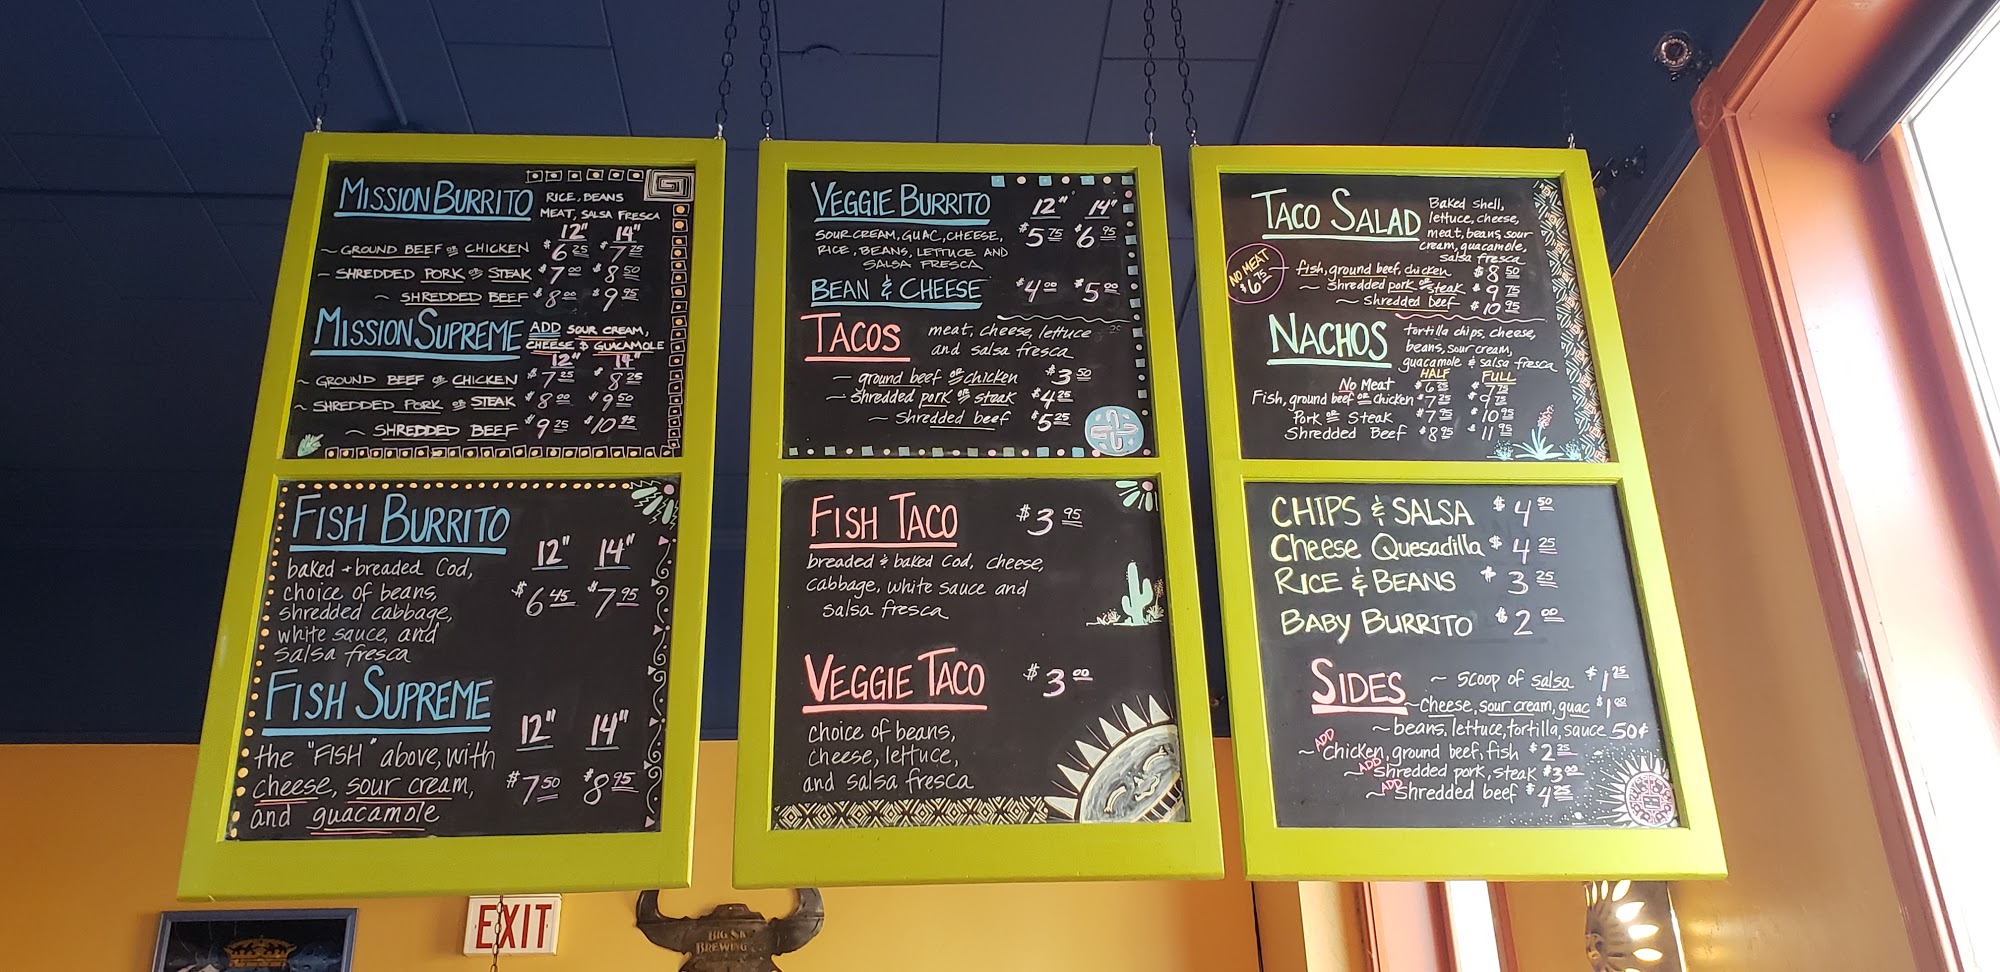 MISSION BURRITO RICE, BEANS
MEAT, SALSA FRESCA
12" 14"
~ GROUND BEEF OR CHICKEN $6 25 $7 25
~ SHREDDED PORK OR STEAK $7 00 $8 50
~ SHREDDED BEEF $8 00 $9 95
MISSION SUPREME ADD SOUR CREAM,
CHEESE & GUACAMOLE
12" 14"
~ GROUND BEEF OR CHICKEN $7 25 $8 25
~ SHREDDED PORK OR STEAK $8 00 $9 50
~ SHREDDED BEEF $9 25 $10 95
FISH BURRITO
12" 14"
baked + breaded Cod,
choice of beans, $6 45 $7 95
shredded cabbage,
white sauce, and
salsa fresca
FISH SUPREME
12" 14"
the "FISH" above, with
cheese, sour cream, $7 50 $8 95
and guacamole
VEGGIE BURRITO 12" 14"
SOUR CREAM, GUAC, CHEESE, $5 75 $6 95
RICE, BEANS, LETTUCE AND
SALSA FRESCA
BEAN & CHEESE $4 00 $5 00
TACOS meat, cheese, lettuce
and salsa fresca
~ ground beef OR chicken $3 50
~ shredded pork OR steak $4 25
~ shredded beef $5 25
FISH TACO $3 95
breaded & baked Cod, cheese,
cabbage, white sauce and
salsa fresca
VEGGIE TACO $3 00
choice of beans,
cheese, lettuce,
and salsa fresca
TACO SALAD Baked shell,
lettuce, cheese,
meat, beans, sour
cream, guacamole,
salsa fresca
NO MEAT
$6 75
~ fish, ground beef, chicken $8 50
~ shredded pork OR steak $9 75
~ shredded beef $10 95
NACHOS tortilla chips, cheese,
beans, sour cream,
guacamole & salsa fresca
HALF FULL
No Meat $6 25 $7 75
Fish, ground beef OR chicken $7 25 $9 75
Pork OR Steak $7 95 $10 95
Shredded Beef $8 95 $11 95
CHIPS & SALSA $4 50
Cheese Quesadilla $4 25
RICE & BEANS $3 25
BABY BURRITO $2 00
SIDES ~ scoop of salsa $1 25
~ cheese, sour cream, guac $1 00
~ beans, lettuce, tortilla, sauce 50¢
~ ADD Chicken, ground beef, fish $2 25
~ ADD shredded pork, steak $3 00
~ ADD shredded beef $4 25
EXIT
BIG SKY
BREWING